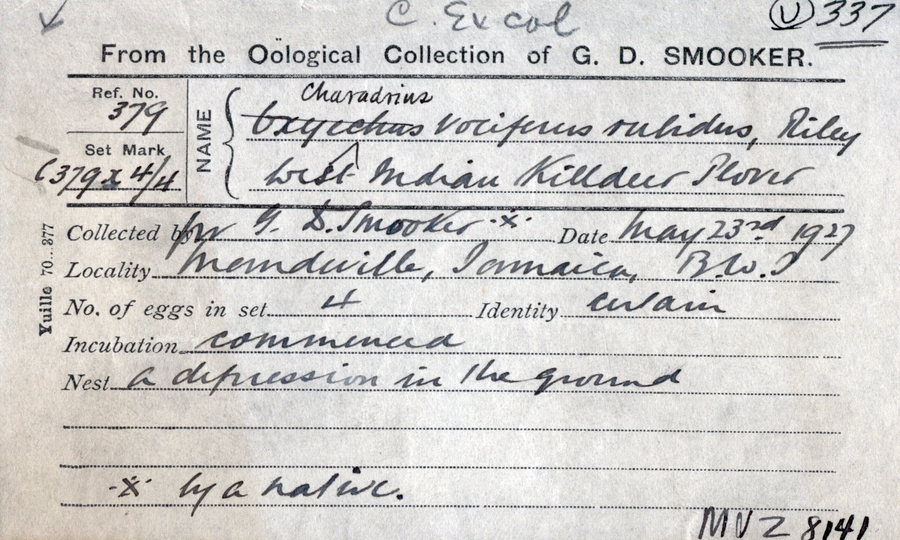 C. Ex col
U 337
From the Oölogical Collection of G. D. SMOOKER.
Ref. No.
379
Set Mark
(379x 4/4
NAME
Charadrius
Oxyechus vociferus rubidus, Riley
West Indian Killdeer Plover
Collected by for G. D. Smooker -x- Date May 23rd 1927
Locality Mandeville, Jamaica, B.W.I
No. of eggs in set 4 Identity certain
Incubation commenced
Nest a depression in the ground
-x- by a native.
Yuille 70..377
MVZ 8141